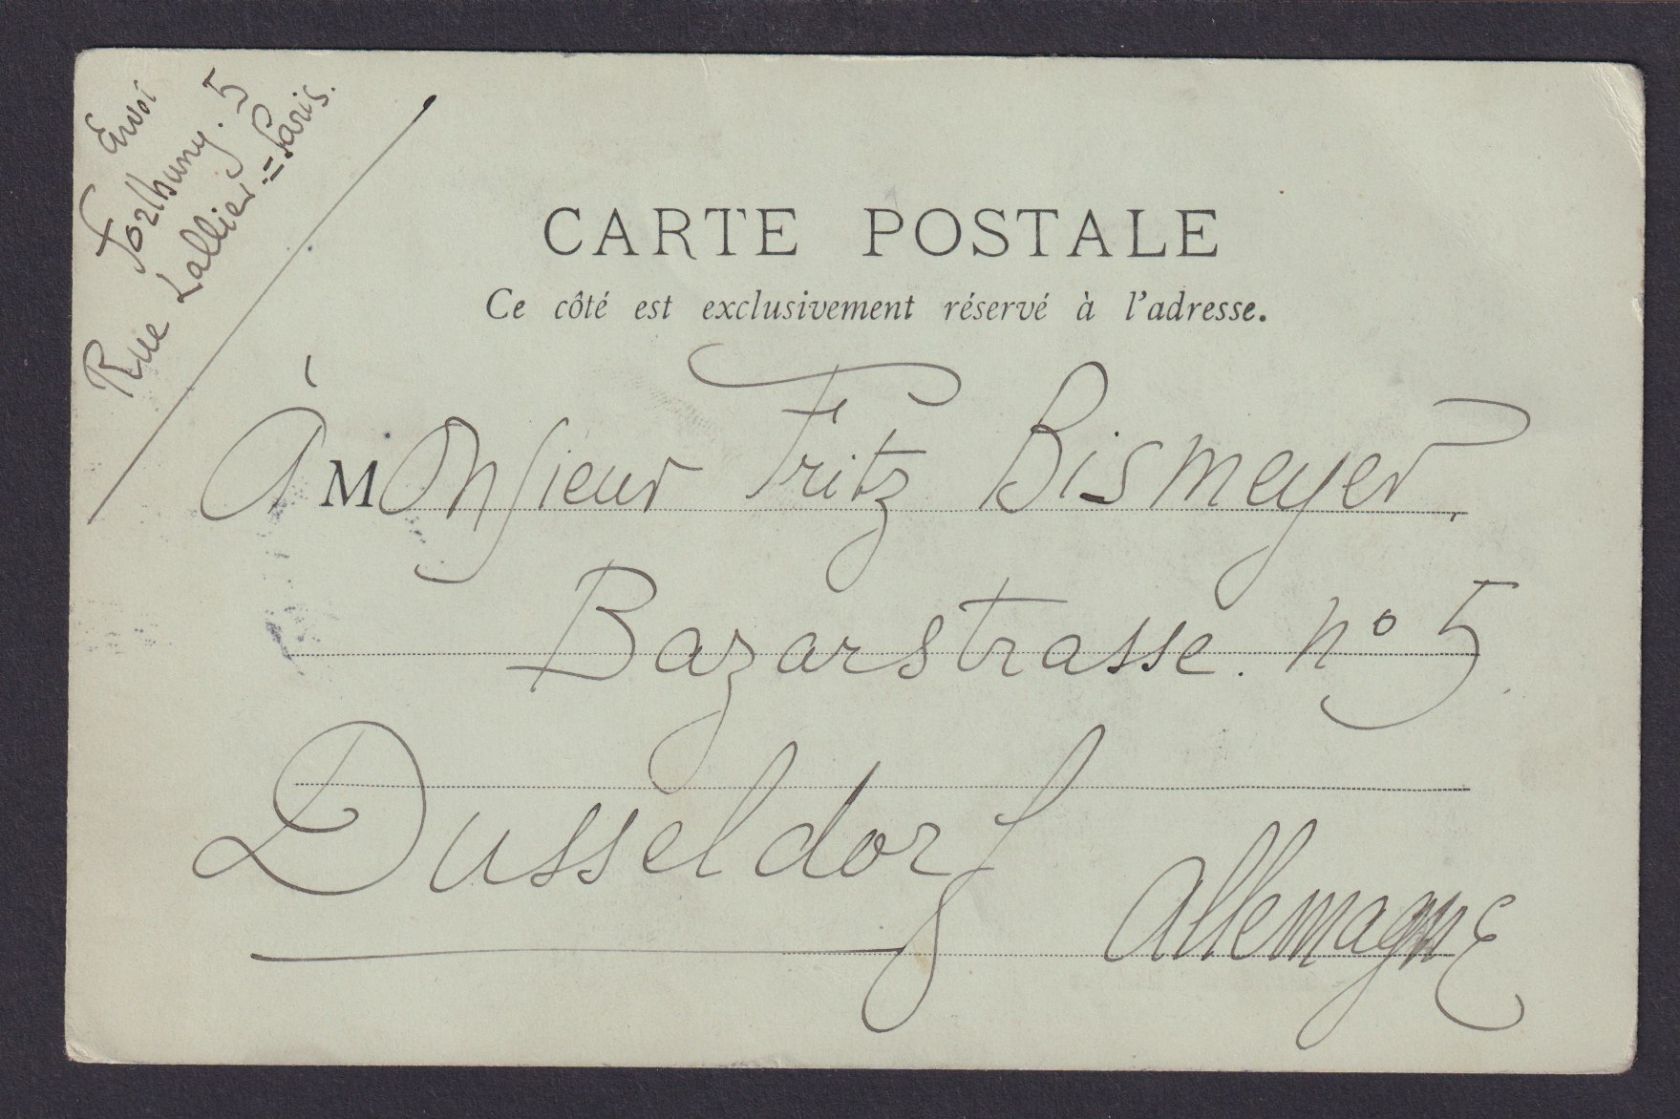 Envoi
Forthuny. 5
Rue Lallier = Paris.
CARTE POSTALE
Ce côté est exclusivement réservé à l'adresse.
À Monsieur Fritz Bismeyer.
Bazarstrasse. nº 5
Dusseldorf
Allemagne